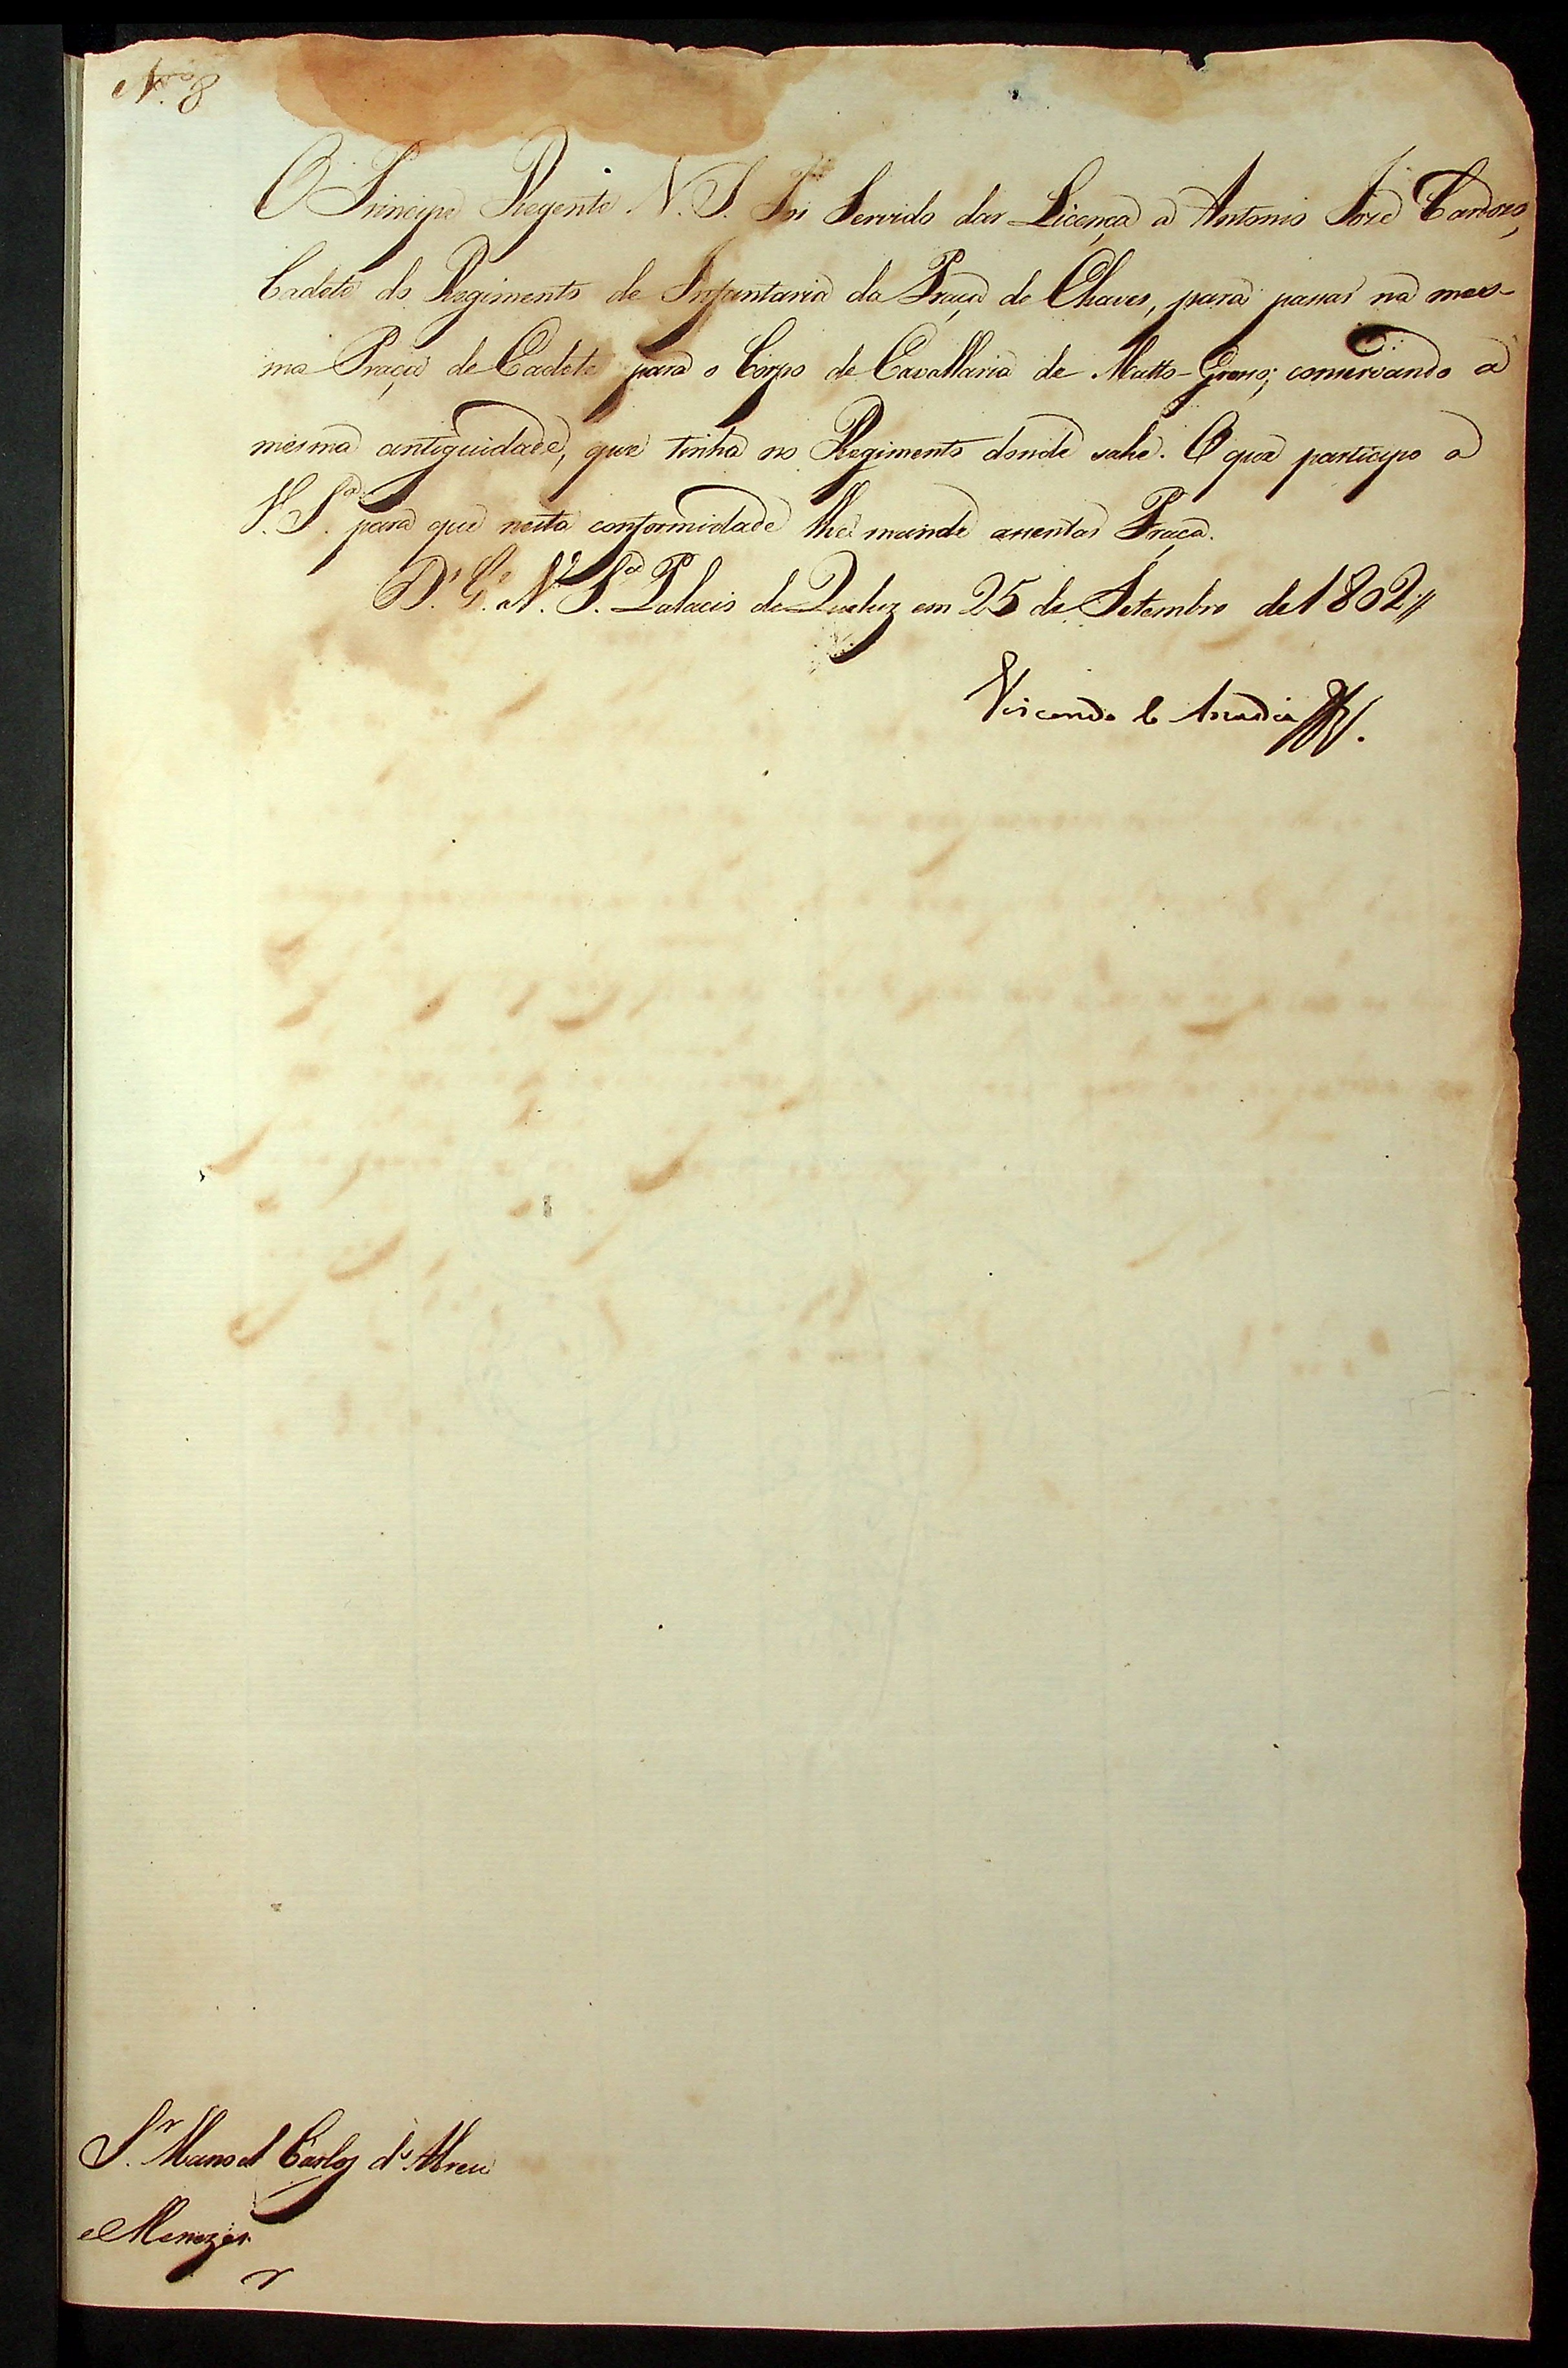 N.º 8
O Principe Regente N. S. Foi Servido dar Licença a Antonio Joze Cardozo,
Cadete do Regimento de Infantaria da Praça de Chaves, para passar na mes-
ma Praça de Cadete para o Corpo de Cavallaria de Matto-Grosso; conservando a
mesma antiguidade, que tinha no Regimento donde sahe. O que participo a
V. S.ª para que nesta conformidade lhe mande assentar Praça.
D.s G.e V. S.ª Palacio de Queluz em 25 de Setembro de 1802 //
Visconde de Anadia
S.r Manoel Carlos d'Abreu
e Menezes